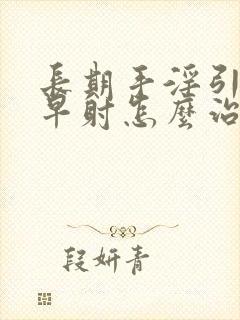 長期手淫引
早射怎麼治
段妍青